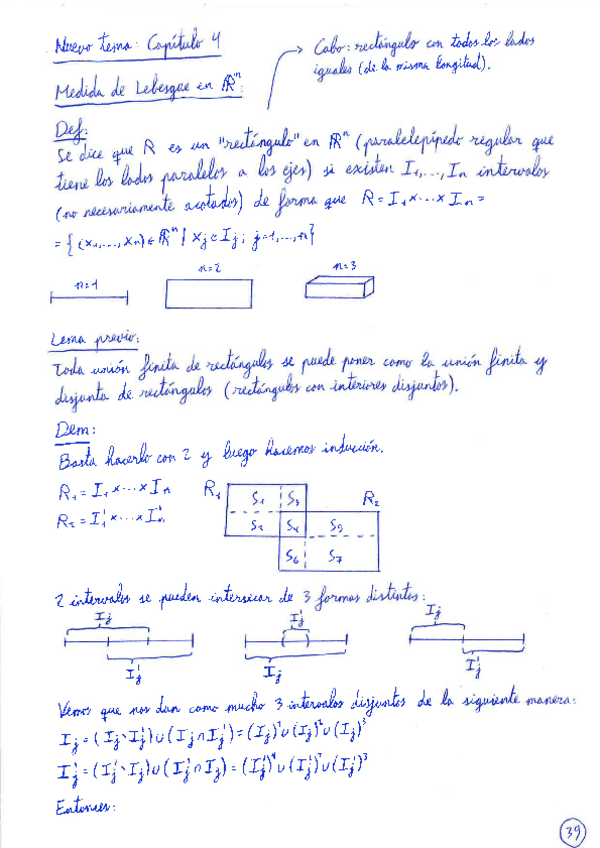 Nuevo tema: Capítulo 4
Cubo: rectángulo con todos los lados
iguales (de la misma longitud).
Medida de Lebesgue en ℝⁿ:
Def:
Se dice que R es un "rectángulo" en ℝⁿ (paralelepípedo regular que
tiene los lados paralelos a los ejes) si existen I₁,...,Iₙ intervalos
(no necesariamente acotados) de forma que R = I₁×...×Iₙ =
= {(x₁,...,xₙ) ∈ ℝⁿ / xⱼ ∈ Iⱼ ; j=1,...,n}
n=1
n=2
n=3
Lema previo:
Toda unión finita de rectángulos se puede poner como la unión finita y
disjunta de rectángulos (rectángulos con interiores disjuntos).
Dem:
Basta hacerlo con 2 y luego hacemos inducción.
R₁ = I₁×...×Iₙ
R₂ = I₁'×...×Iₙ'
R₁ S₁ S₃ R₂
S₂ S₄ S₅
S₆ S₇
2 intervalos se pueden intersicar de 3 formas distintas:
Iⱼ Iⱼ' Iⱼ
Iⱼ' Iⱼ Iⱼ'
Vemos que nos dan como mucho 3 intervalos disjuntos de la siguiente manera:
Iⱼ = (Iⱼ∖Iⱼ')∪(Iⱼ∩Iⱼ') = (Iⱼ)¹∪(Iⱼ)²∪(Iⱼ)³
Iⱼ' = (Iⱼ'∖Iⱼ)∪(Iⱼ'∩Iⱼ) = (Iⱼ')¹∪(Iⱼ')²∪(Iⱼ')³
Entonces:
39